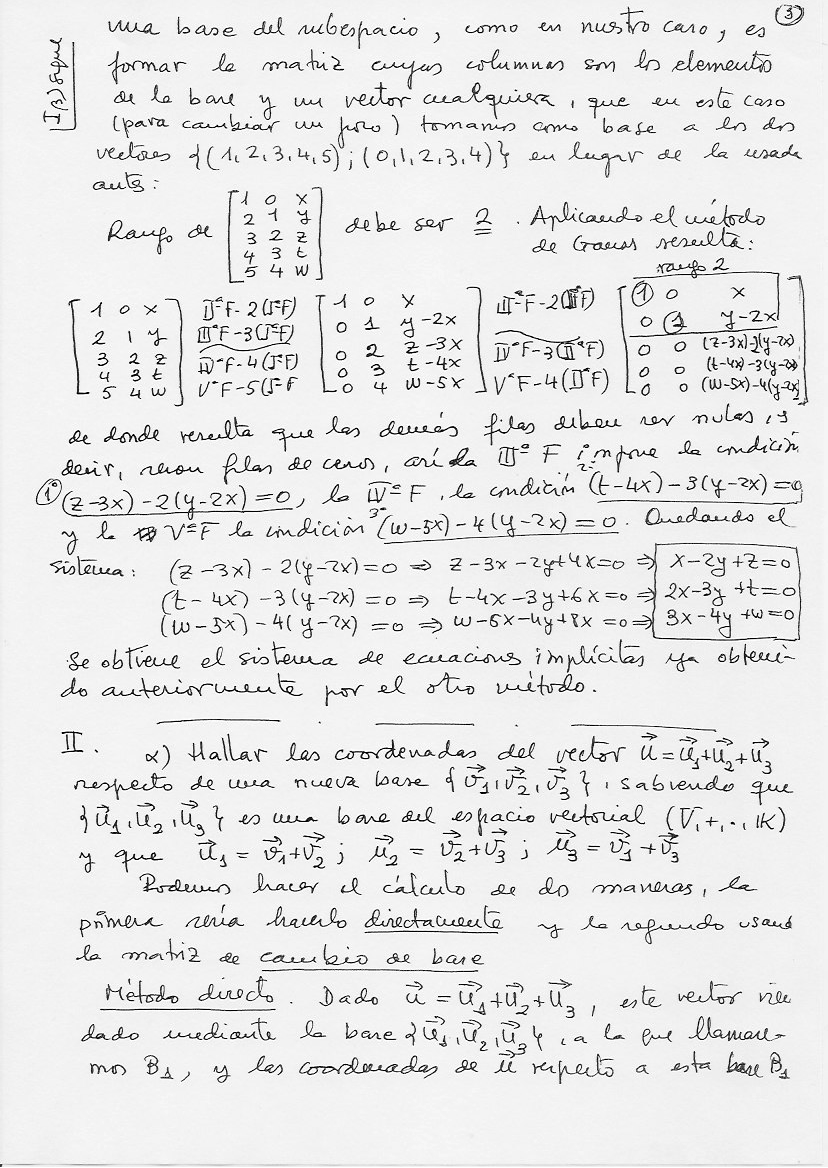 ③
I β) Sigue
una base del subespacio, como en nuestro caso, es
formar la matriz cuyas columnas son los elementos
de la base y un vector cualquiera, que en este caso
(para cambiar un poco) tomamos como base a los dos
vectores {(1,2,3,4,5); (0,1,2,3,4)} en lugar de la usada
antes:
Rango de [1 0 x; 2 1 y; 3 2 z; 4 3 t; 5 4 w] debe ser 2. Aplicando el método
de Gauss resulta:
rango 2
[1 0 x; 2 1 y; 3 2 z; 4 3 t; 5 4 w] IIªF-2(IªF) IIIªF-3(IªF) IVªF-4(IªF) VªF-5(IªF [1 0 x; 0 1 y-2x; 0 2 z-3x; 0 3 t-4x; 0 4 w-5x] IIIªF-2(IIªF) IVªF-3(IIªF) VªF-4(IIªF) [1 0 x; 0 1 y-2x; 0 0 (z-3x)-2(y-2x); 0 0 (t-4x)-3(y-2x); 0 0 (w-5x)-4(y-2x)]
de donde resulta que las demás filas deben ser nulas, es
decir, sean filas de ceros, así la IIIª F impone la condición
1º (z-3x)-2(y-2x)=0, la IVªF, la condición 2º (t-4x)-3(y-2x)=0
y la VªF la condición 3º (w-5x)-4(y-2x)=0. Quedando el
sistema: (z-3x)-2(y-2x)=0 ⇒ z-3x-2y+4x=0 ⇒ x-2y+z=0
(t-4x)-3(y-2x)=0 ⇒ t-4x-3y+6x=0 ⇒ 2x-3y+t=0
(w-5x)-4(y-2x)=0 ⇒ w-5x-4y+8x=0 ⇒ 3x-4y+w=0
Se obtiene el sistema de ecuaciones implícitas ya obteni-
do anteriormente por el otro método.
II. α) Hallar las coordenadas del vector u⃗=u⃗1+u⃗2+u⃗3
respecto de una nueva base {v⃗1,v⃗2,v⃗3}, sabiendo que
{u⃗1,u⃗2,u⃗3} es una base del espacio vectorial (V,+,·,IK)
y que u⃗1=v⃗1+v⃗2; u⃗2=v⃗2+v⃗3; u⃗3=v⃗1+v⃗3
Podemos hacer el cálculo de dos maneras, la
primera sería hacerlo directamente y la segunda usand
la matriz de cambio de base
Método directo. Dado u⃗=u⃗1+u⃗2+u⃗3, este vector vie
dado mediante la base {u⃗1,u⃗2,u⃗3}, a la que llamare-
mos B1, y las coordenadas de u⃗ respecto a esta base B1